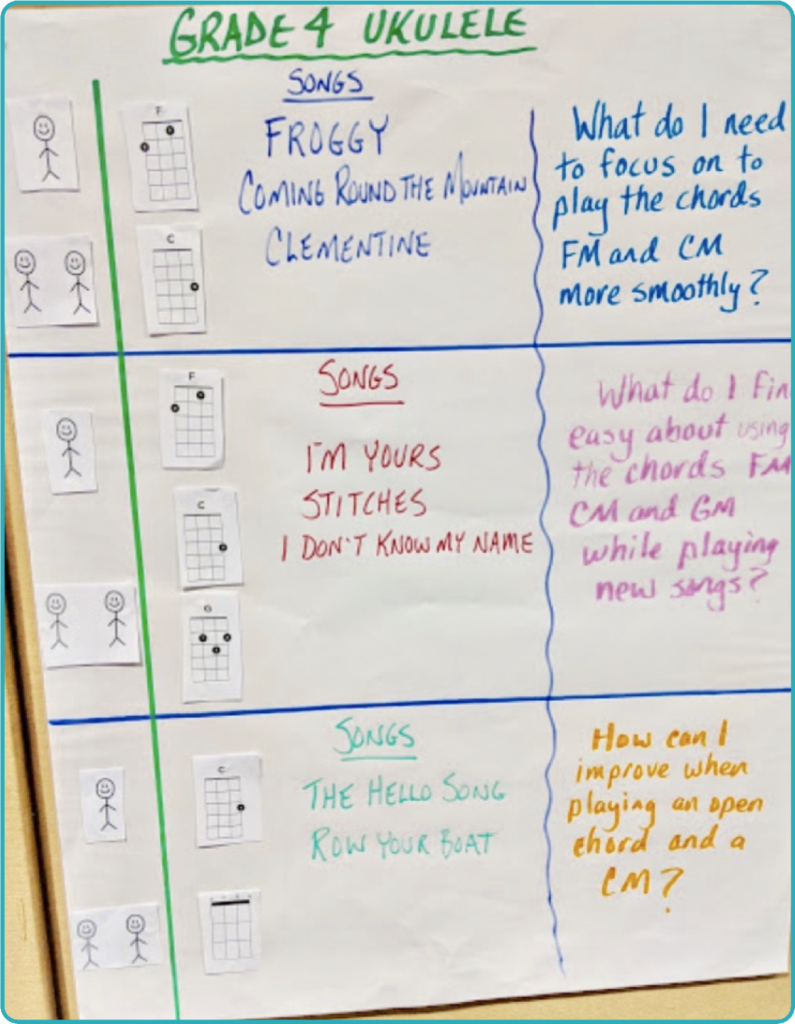 GRADE 4 UKULELE
SONGS
F
FROGGY
COMING ROUND THE MOUNTAIN
C
CLEMENTINE
What do I need
to focus on to
play the chords
FM and CM
more smoothly?
F
SONGS
I'M YOURS
C
STITCHES
I DON'T KNOW MY NAME
G
What do I fin
easy about using
the chords FM
CM and GM
while playing
new songs?
SONGS
C
THE HELLO SONG
ROW YOUR BOAT
How can I
improve when
playing an open
chord and a
CM?